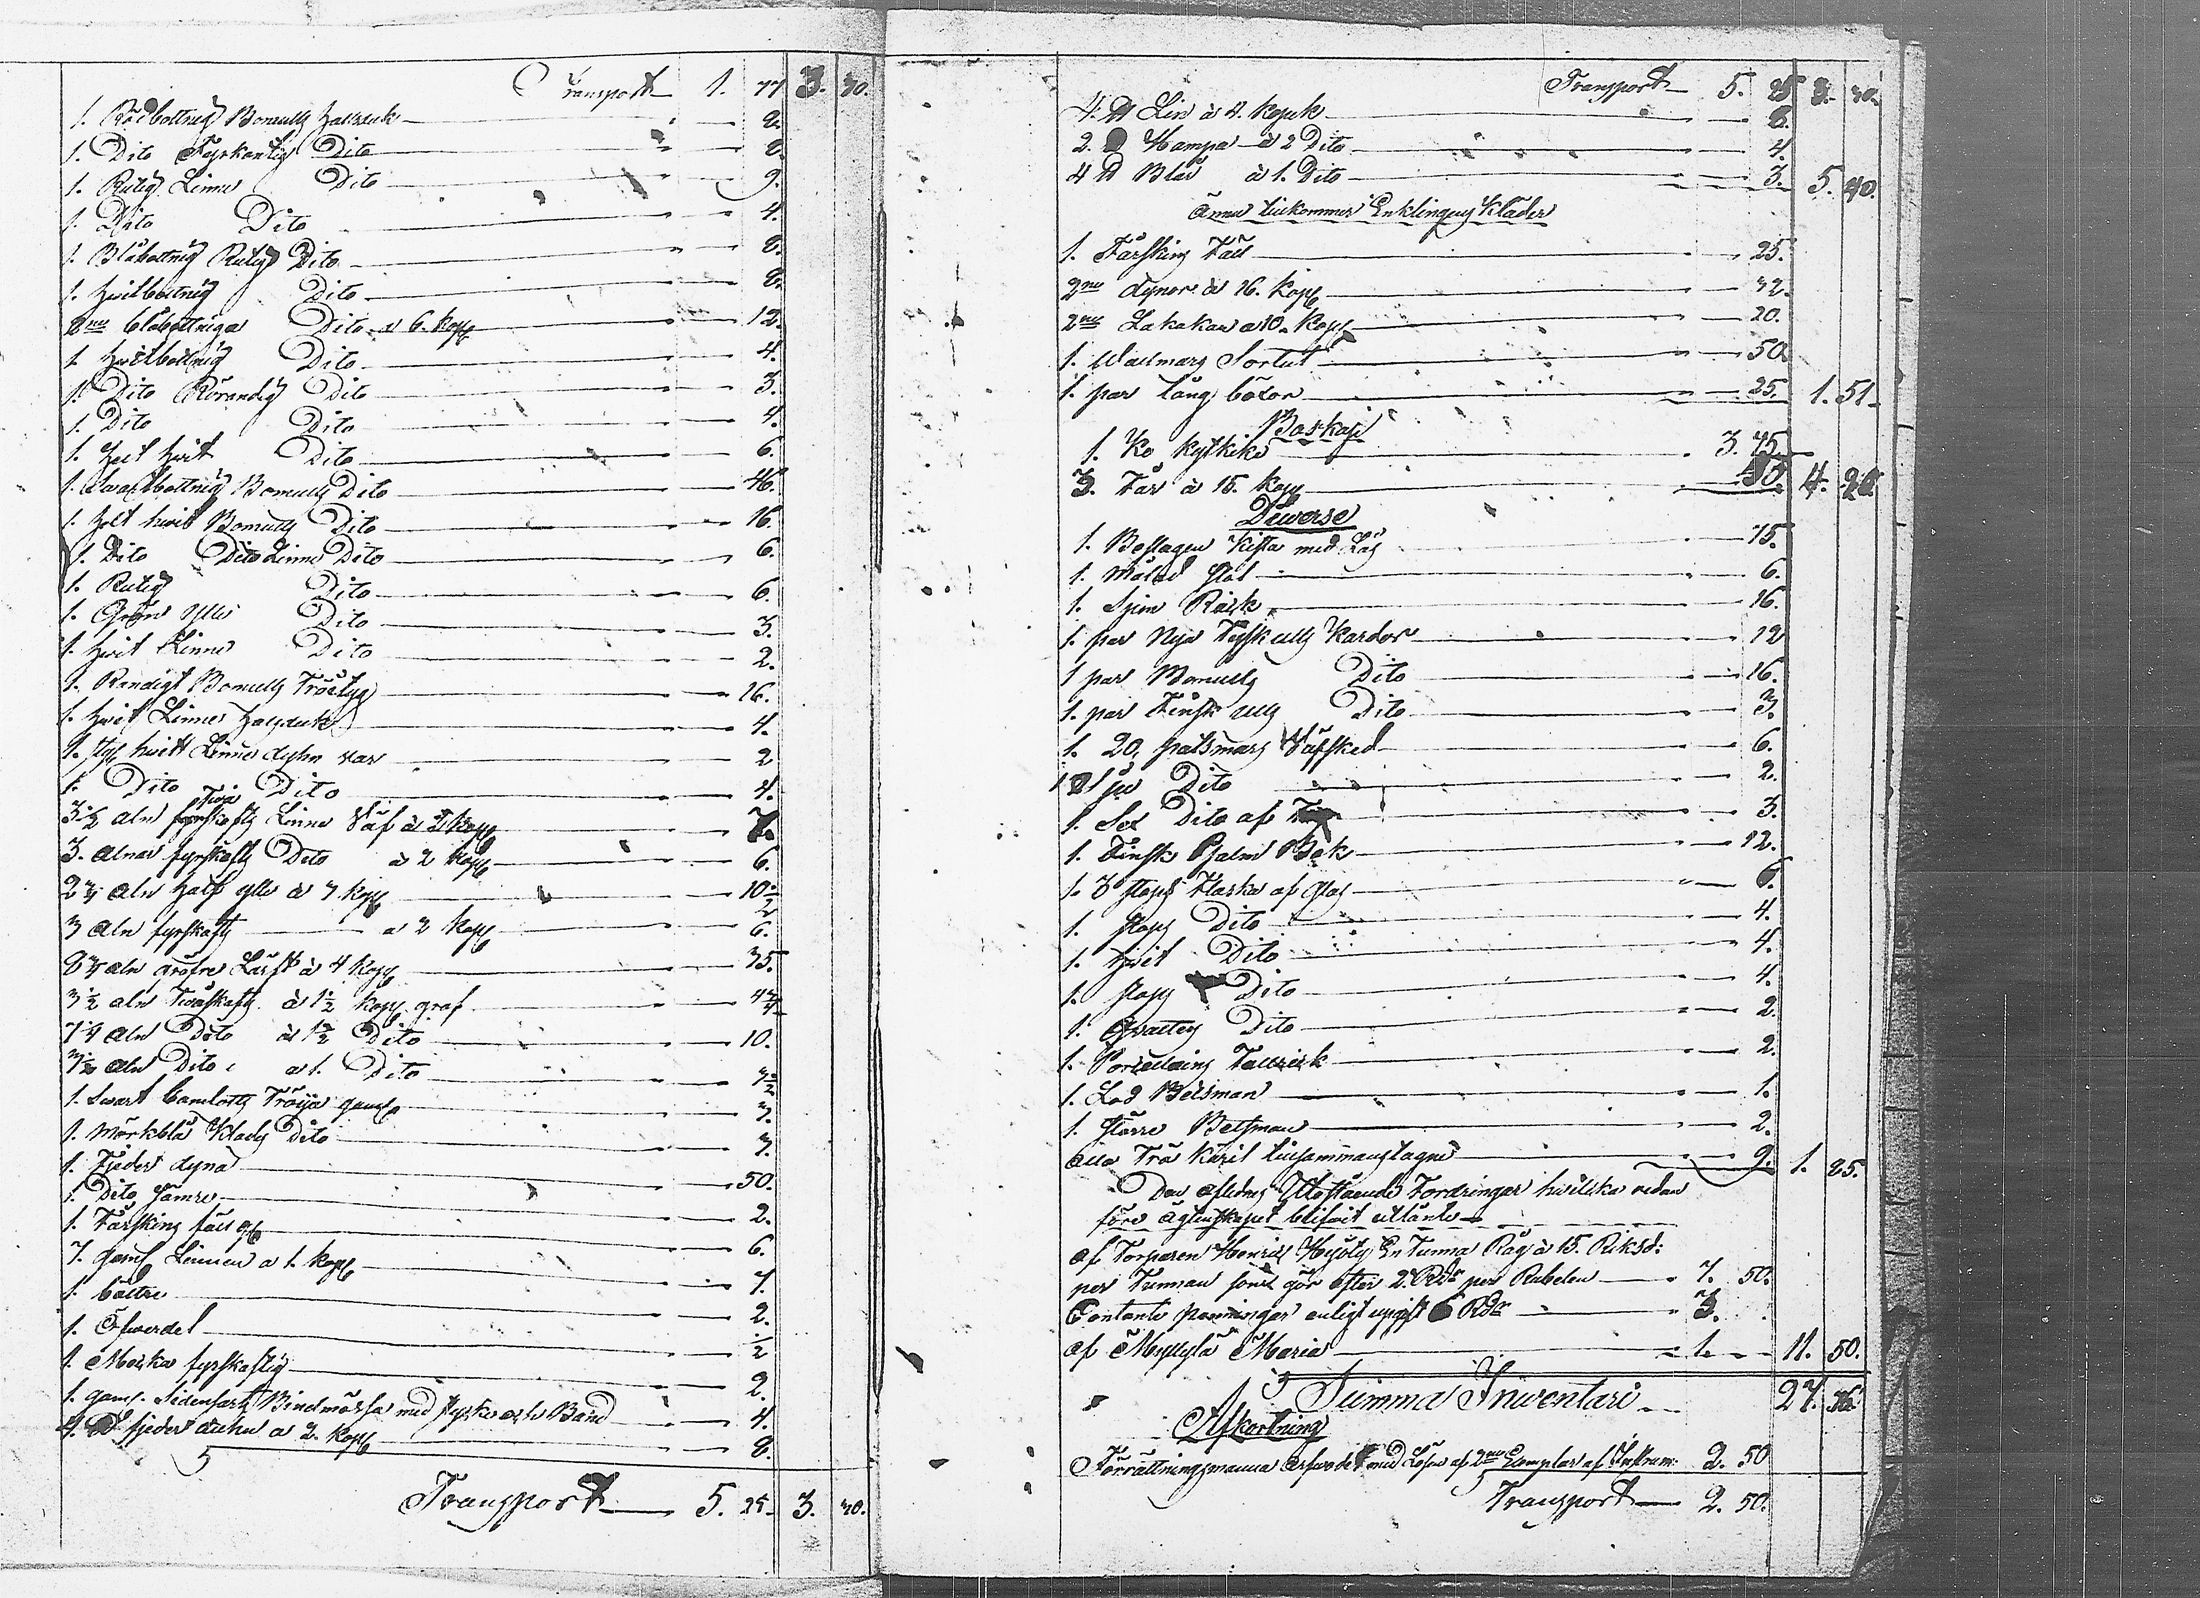 Transport 1. 77 3. 30.
1. Rödbottnig Bomulls halsduk 8.
1. Dito Fyrkantig Dito 8.
1. Rutig Linne Dito 9.
1. Dito Dito 4.
1. Blåbottnig Rutig Dito 8.
1. hvitbottnig Dito 8.
2ne blåbottniga Dito a 6. kop 12.
1. hvitbottnig Dito 4.
1. Dito Rörandig Dito 3.
1. Dito Dito 4.
1. helt hvit Dito 6.
1. Svartbottnig Bomulls Dito 46.
1. helt hvit Bomulls Dito 16.
1. Dito Dito Linne Dito 6.
1. Rutig Dito 6.
1. Grön Ylle Dito 3.
1. hvit Linne Dito 2.
1. Randigt Bomulls Tröjtyg 16.
1. hvit Linne halsduk 4.
1. hvitt Linne dyhn var 2
1. Dito Dito 4.
3 1/2 aln Två skafts Linne Väf à 2 kop 7.
3. alnar fyrskafts Dito à 2 kop 6.
2 3/4 aln half ylle à kop 10 1/2
3 aln fyrskafts a 2 kop 6.
8 3/4 aln gröfre Lärft à 4 kop 35.
3 1/2 aln Tvåskafts à 1 1/2 kop graf 4 3/4
aln Dito à 1 1/2 Dito 10.
aln Dito a 1. Dito 3 1/2
1. Svart Camlotts Tröija gaml 3.
1. Mörkblå Klädes Dito 3.
1. Fjeder dyna 50.
1. Dito Sämre 2.
1. Fårskins fäll gl 6.
7. gaml Linnen a 1. kop 7.
1. bälte 2.
1. Öfverdel 1/2
1. Mekko fyrskaftig 2.
1. gaml. Sidensarts Bindmössa med stycke och Band 4.
4. fjeder duhn a 2. kop 8.
Transport 5. 25 3. 30.
Transport 5. 25 3. 30.
4. Lin à 4. kopek 6.
2. Hampa à 2 Dito 4.
4 Blår à 1. Dito 3. 5. 40.
Ännu tillkommer Enklingens Kläder
1. Fårskins Fäll 25.
2ne dynor à 16. kop 32.
2ne Lakakan a 10. kop 20.
1. Wallmars Sortut 50.
1. par lång böxor 25. 1. 51
Boskap
1. Ko kytkike 3. 75
3. Får à 15. kop 4. 20
Diverse
1. Beslagen Kista med Lås 75.
1. Målad stol 6.
1. Spin Råck 16.
1. par Nya Tysk ulls Kardor 12
1 par Bomulls Dito 16.
1. par Finsk ulls Dito 3.
1. 20, pasmars Väfsked 6.
1 sju Dito 2.
1. Sex Dito af 3.
1. Finsk Psalm Bok 12.
1. 3 stops Flaska af glas 6.
1. stops Dito 4.
1. hvit Dito 4.
1. stops Dito 4.
1. qvarters Dito 2.
1. Porcellains Tallrick 2.
1. Lod Betsman 1.
1. större Betsman 2.
Alla Trä käril tillsammans tagne 9. 1. 85.
Den aflednes Utestående Fordringar hvilka redan
före ägtenskapet blifvit utlånte
af Torparen Henric En Tunna Råg à 15. Riksd:
per Tunnan som gör efter 2. Rdr per Rubelen 7. 50.
Contante penningar enligt uppgift 6 Rdr 3.
af Myllylä Maria 1. 11. 50.
Summa Inventari 27. 36.
Afkortning
Förrättningsmanna Arfvodet med Lösen af 2ne Exemplar af Instrum: 2. 50
Transport 2. 50.